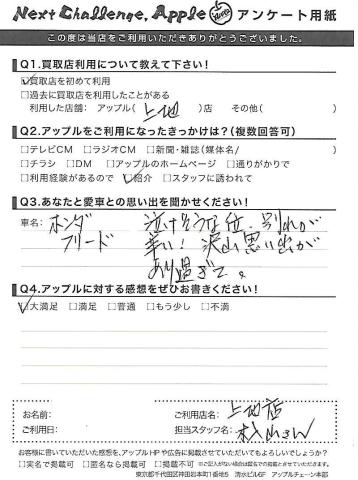 Next Challenge, Apple アンケート用紙
この度は当店をご利用いただきありがとうございました。
Q1.買取店利用について教えて下さい!
☑買取店を初めて利用
□過去に買取店を利用したことがある
利用した店舗: アップル(上地)店 その他( )
Q2.アップルをご利用になったきっかけは?(複数回答可)
□テレビCM □ラジオCM □新聞・雑誌(媒体名/ )
□チラシ □DM □アップルのホームページ □通りがかりで
□利用経験があるので ☑紹介 □スタッフに誘われて
Q3.あなたと愛車との思い出を聞かせください!
車名: ホンダ 泣けそうな位、別れが
フリード 辛い! 沢山思い出が
あり過ぎて。
Q4.アップルに対する感想をぜひお書きください!
☑大満足 □満足 □普通 □もう少し □不満
お名前: ご利用店名: 上地店
ご利用日: 担当スタッフ名: 杉山さん
お客様に書いていただいた感想を、アップルHPや広告に掲載させていただいてもよろしいでしょうか?
□実名で掲載可 □匿名なら掲載可 □掲載不可 ※ご記入がない場合は匿名での掲載とさせていただきます。
東京都千代田区神田岩本町1番地5 清水ビル6F アップルチェーン本部